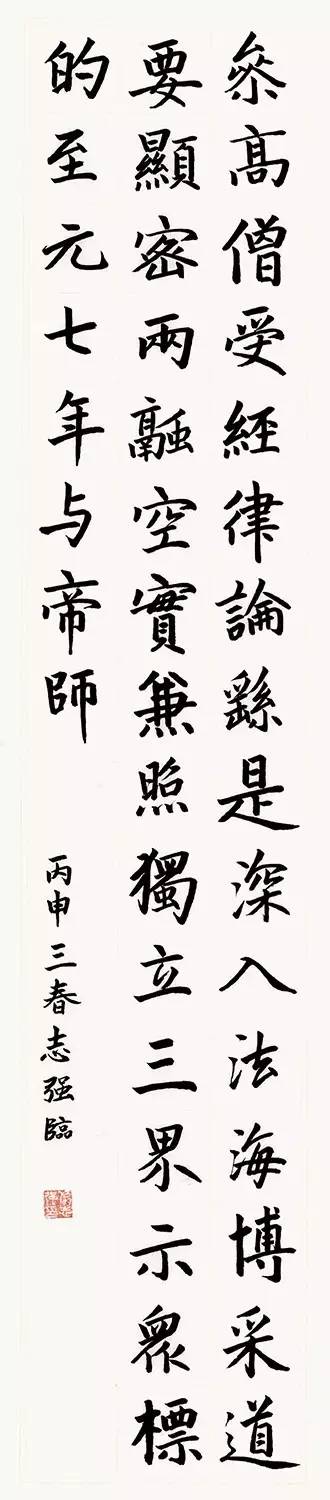 叅高僧受經律論繇是深入法海博采道
要顯密兩融空實兼照獨立三界示衆標
的至元七年与帝師
丙申三春志强臨